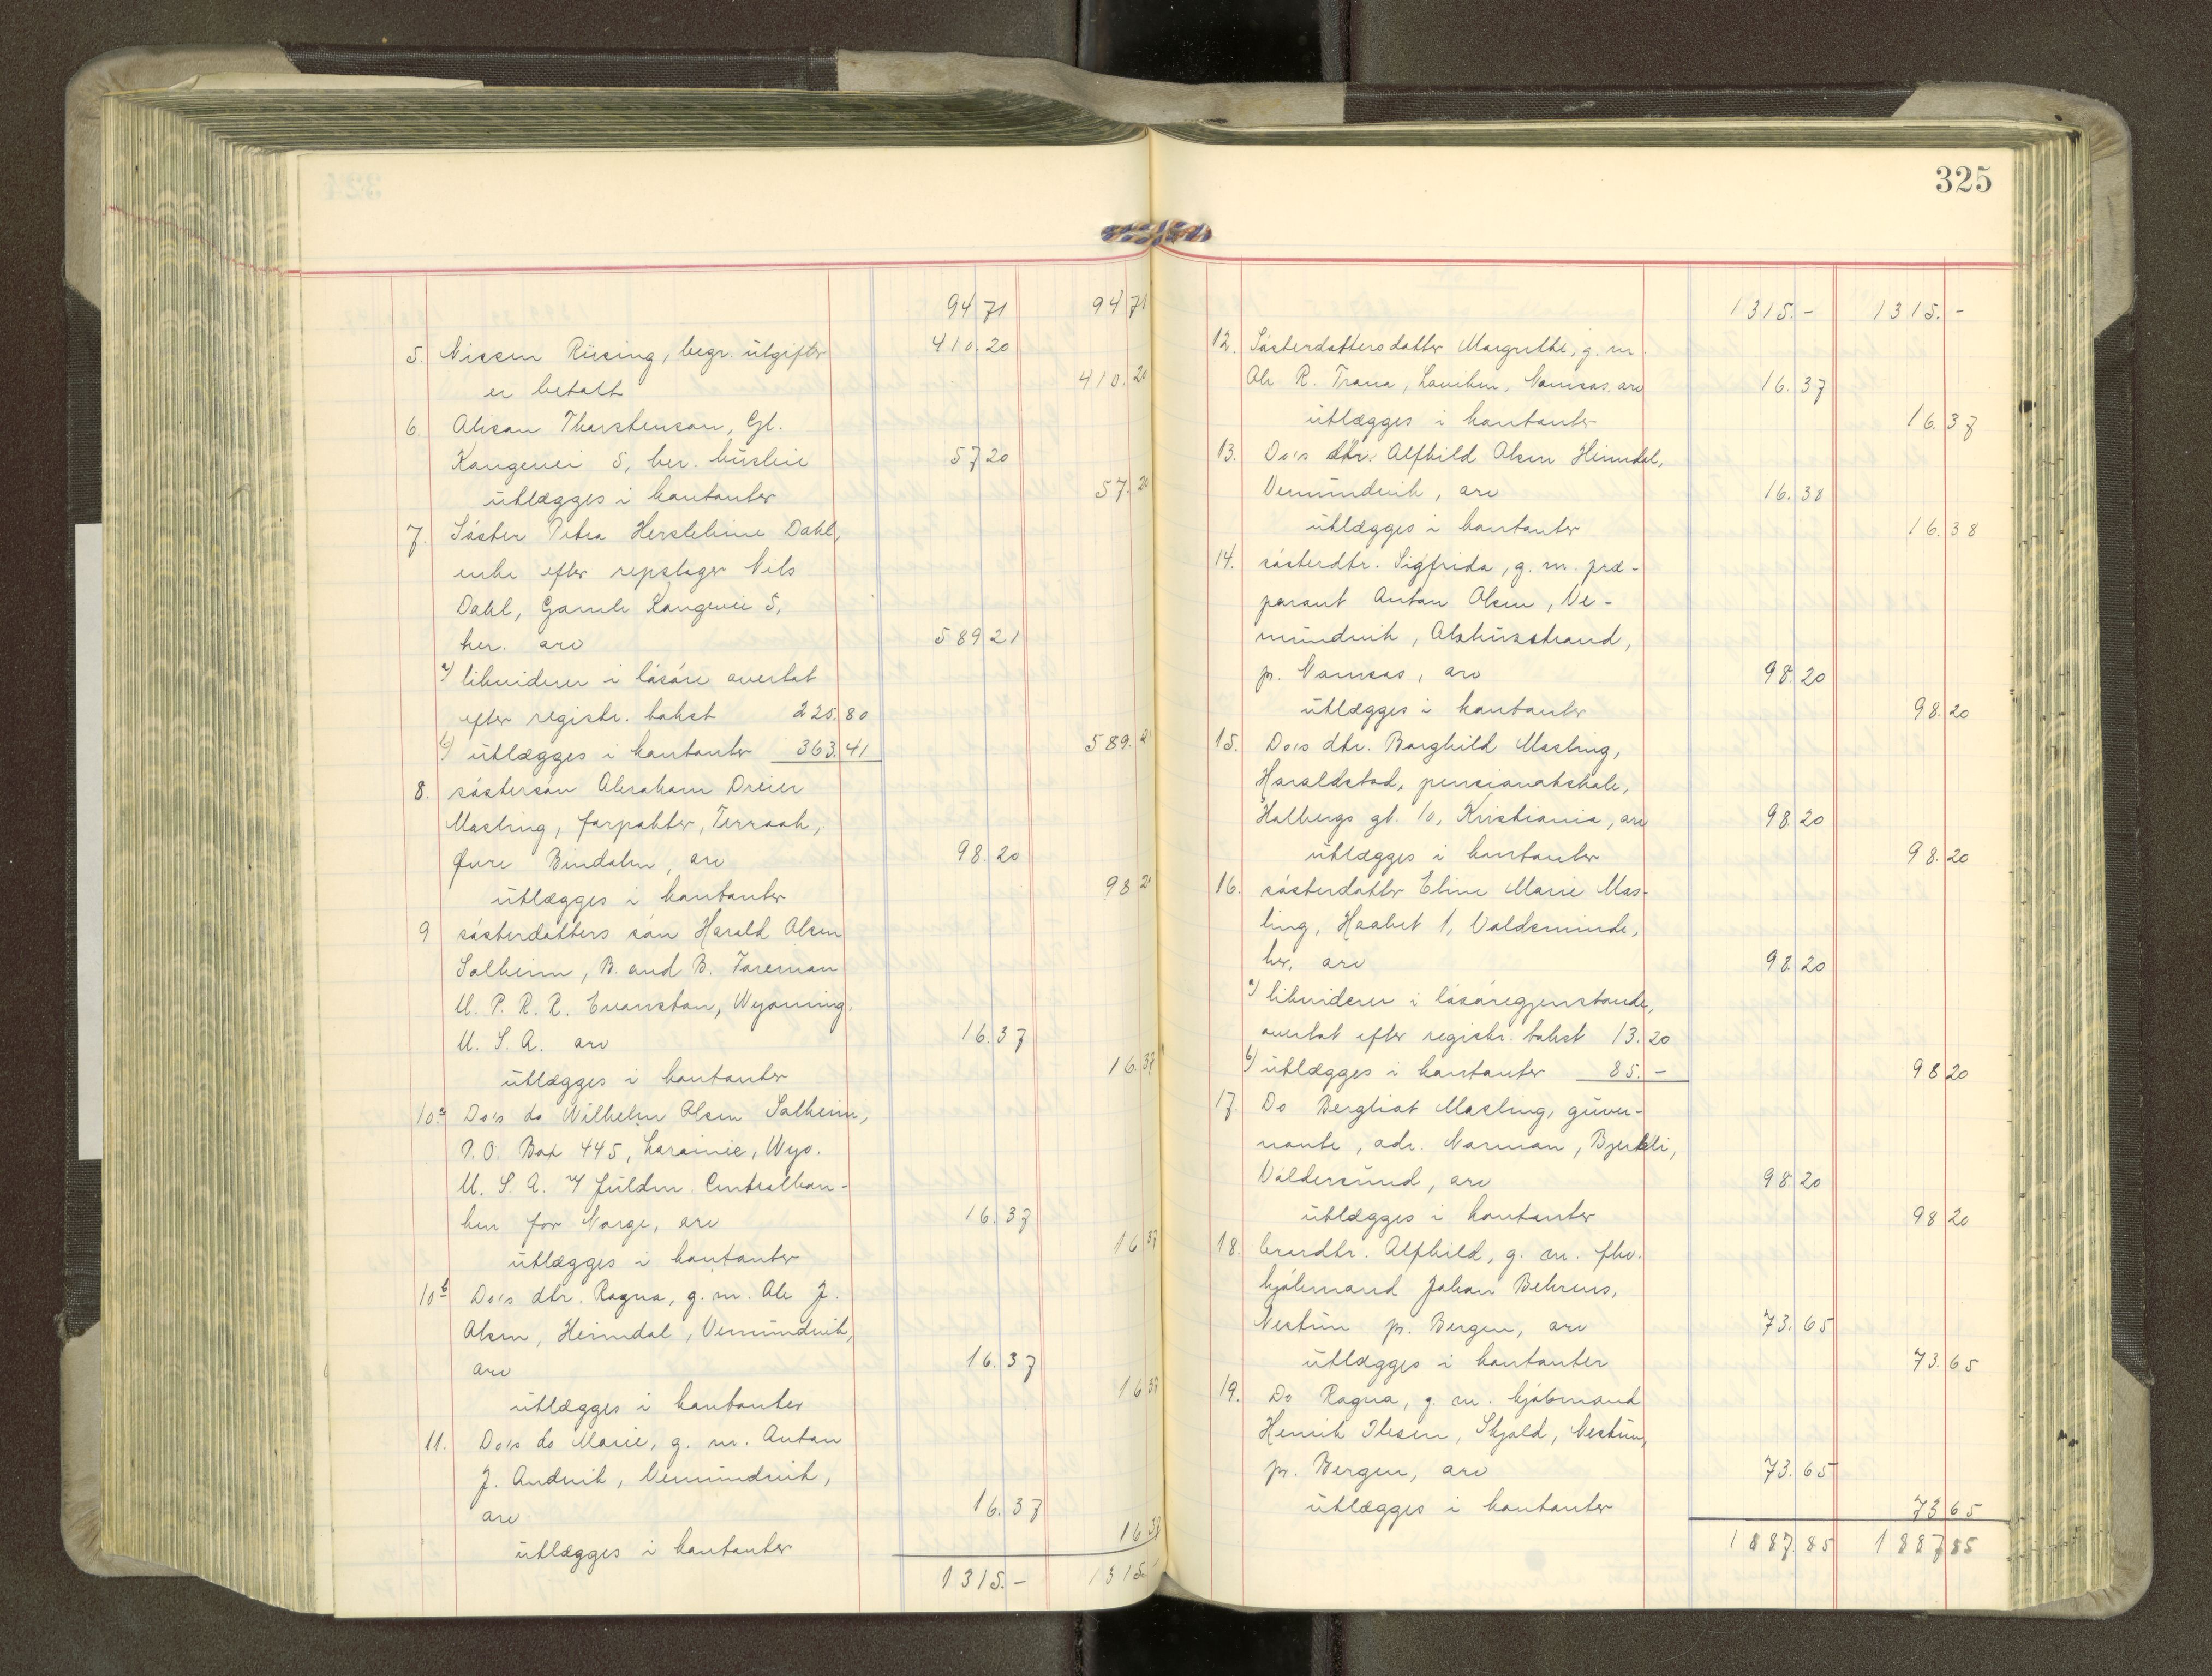 94 71 94 71
5. Nissen Riising, begr. utgifter 410.20
er betalt 410.20
6. Alison Thorstenson, Gl.
Kongevei 5, her. husleie 57 20
utlægges i kontanter 57.20
7. Søster Petra Herslebine Dahl,
enke efter repslager Nils
Dahl, Gamle Kongevei 5,
her. arv 589 21
a) likviderer i løsøre overtat
efter registr. takst 225.80
b) utlægges i kontanter 363.41 589.21
8. søstersøn Abraham Dreier
Masling, forpakter, Terraak,
Øvre Bindalen, arv 98.20
utlægges i kontanter 98 20
9 søsterdatters søn Harald Olsen
Solheim, B. and B. Foreman
U. P. R. R. Evanston, Wyoming.
U. S. A. arv 16.37
utlægges i kontanter 16.37
10a Do's do Wilhelm Olsen Solheim,
P.O. Box 445, Laramie, Wyo.
U. S. A. v/ fuldm. Centralban-
ken for Norge, arv 16.37
utlægges i kontanter 16 37
10b Do's dtr. Ragna, g. m. Ole J.
Olsen, Heimdal, Vemundvik,
arv 16.37
utlægges i kontanter 16 37
11. Do's do Marie, g. m. Anton
J. Andvik, Vemundvik,
arv 16.37
utlægges i kontanter 16 37
1315.- 1315.-
325
1315.- 1315.-
12. Søsterdattersdatter Margrethe, g. m.
Ole R. Trana, Namsos. arv 16.37
utlægges i kontanter 16.37
13. Do's dtr. Alfhild Olsen Heimdal,
Vemundvik, arv 16.38
utlægges i kontanter 16.38
14. søsterdtr. Sigfrida, g. m. præ-
parant Anton Olsen, Ve-
mundvik, Alhusstrand,
pr. Namsos, arv 98.20
utlægges i kontanter 98.20
15. Do's dtr. Borghild Masling,
Haraldstad, pensionatskole,
Holbergs gt. 10, Kristiania, arv 98.20
utlægges i kontanter 98.20
16. søsterdatter Eline Marie Mas-
ling, Haabet 1, Voldsminde,
her, arv 98.20
a) likviderer i løsøregjenstande,
overtat efter registr. takst 13.20
b) utlægges i kontanter 85.- 98 20
17. Do Bergliot Masling, guver-
nante, adr. Norman, Bjerkeli,
Valdersund, arv 98.20
utlægges i kontanter 98 20
18. brordtr. Alfhild, g. m. fhv.
kjøbmand Johan Behrens,
Nestun pr. Bergen, arv 73.65
utlægges i kontanter 73.65
19. Do Ragna, g. m. kjøbmand
Henrik Ibsen, Skjold, Nestun,
pr. Bergen, arv 73.65
utlægges i kontanter 73 65
1887.85 1887 85